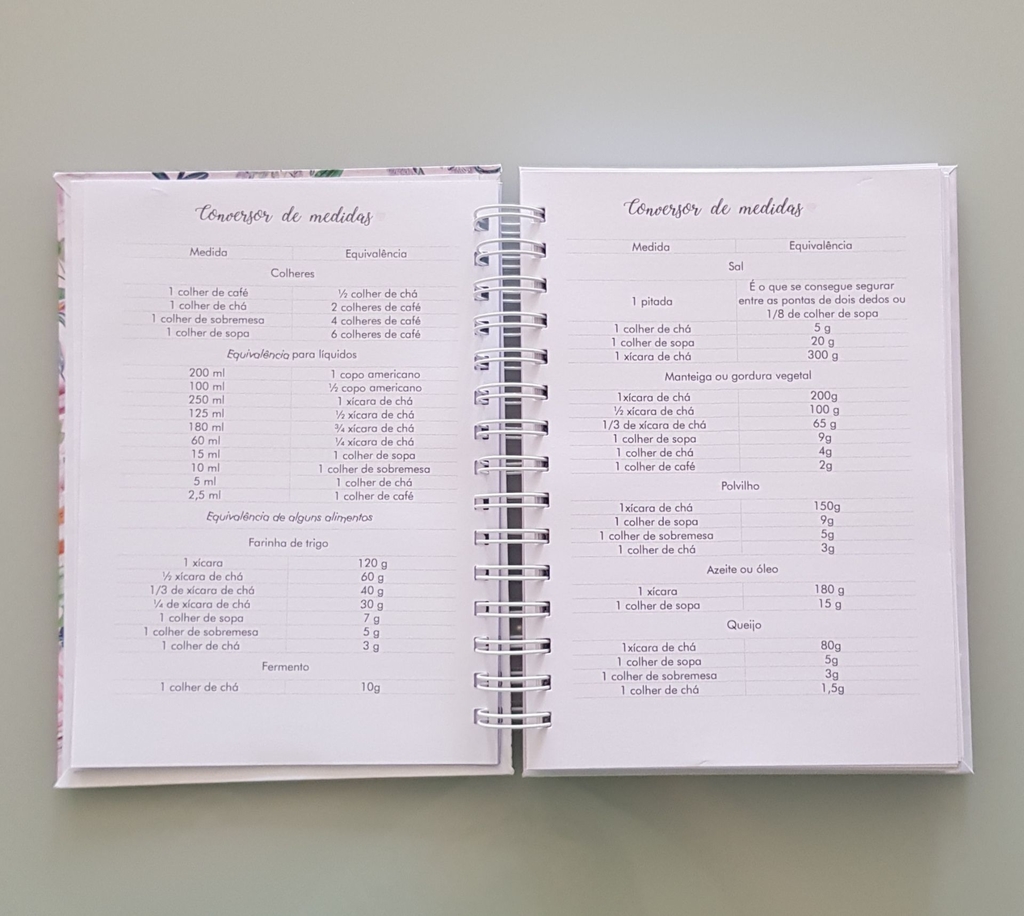 Conversor de medidas
Medida Equivalência
Colheres
1 colher de café ½ colher de chá
1 colher de chá 2 colheres de café
1 colher de sobremesa 4 colheres de café
1 colher de sopa 6 colheres de café
Equivalência para líquidos
200 ml 1 copo americano
100 ml ½ copo americano
250 ml 1 xícara de chá
125 ml ½ xícara de chá
180 ml ¾ xícara de chá
60 ml ¼ xícara de chá
15 ml 1 colher de sopa
10 ml 1 colher de sobremesa
5 ml 1 colher de chá
2,5 ml 1 colher de café
Equivalência de alguns alimentos
Farinha de trigo
1 xícara 120 g
½ xícara de chá 60 g
1/3 de xícara de chá 40 g
¼ de xícara de chá 30 g
1 colher de sopa 7 g
1 colher de sobremesa 5 g
1 colher de chá 3 g
Fermento
1 colher de chá 10g
Conversor de medidas
Medida Equivalência
Sal
É o que se consegue segurar
1 pitada entre as pontas de dois dedos ou
1/8 de colher de sopa
1 colher de chá 5 g
1 colher de sopa 20 g
1 xícara de chá 300 g
Manteiga ou gordura vegetal
1xícara de chá 200g
½ xícara de chá 100 g
1/3 de xícara de chá 65 g
1 colher de sopa 9g
1 colher de chá 4g
1 colher de café 2g
Polvilho
1xícara de chá 150g
1 colher de sopa 9g
1 colher de sobremesa 5g
1 colher de chá 3g
Azeite ou óleo
1 xícara 180 g
1 colher de sopa 15 g
Queijo
1xícara de chá 80g
1 colher de sopa 5g
1 colher de sobremesa 3g
1 colher de chá 1,5g